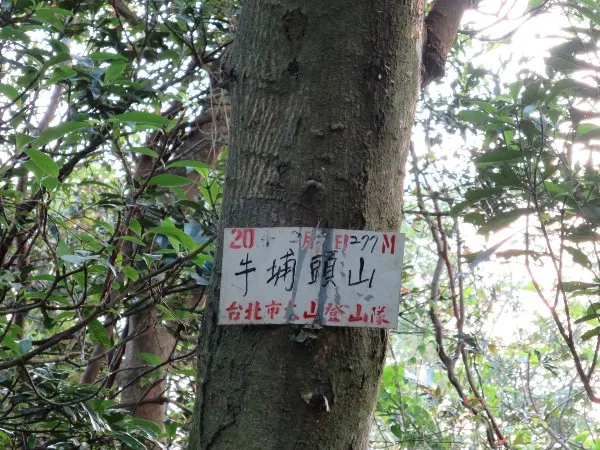 20 月 日 277M
牛埔頭山
台北市大山登山隊